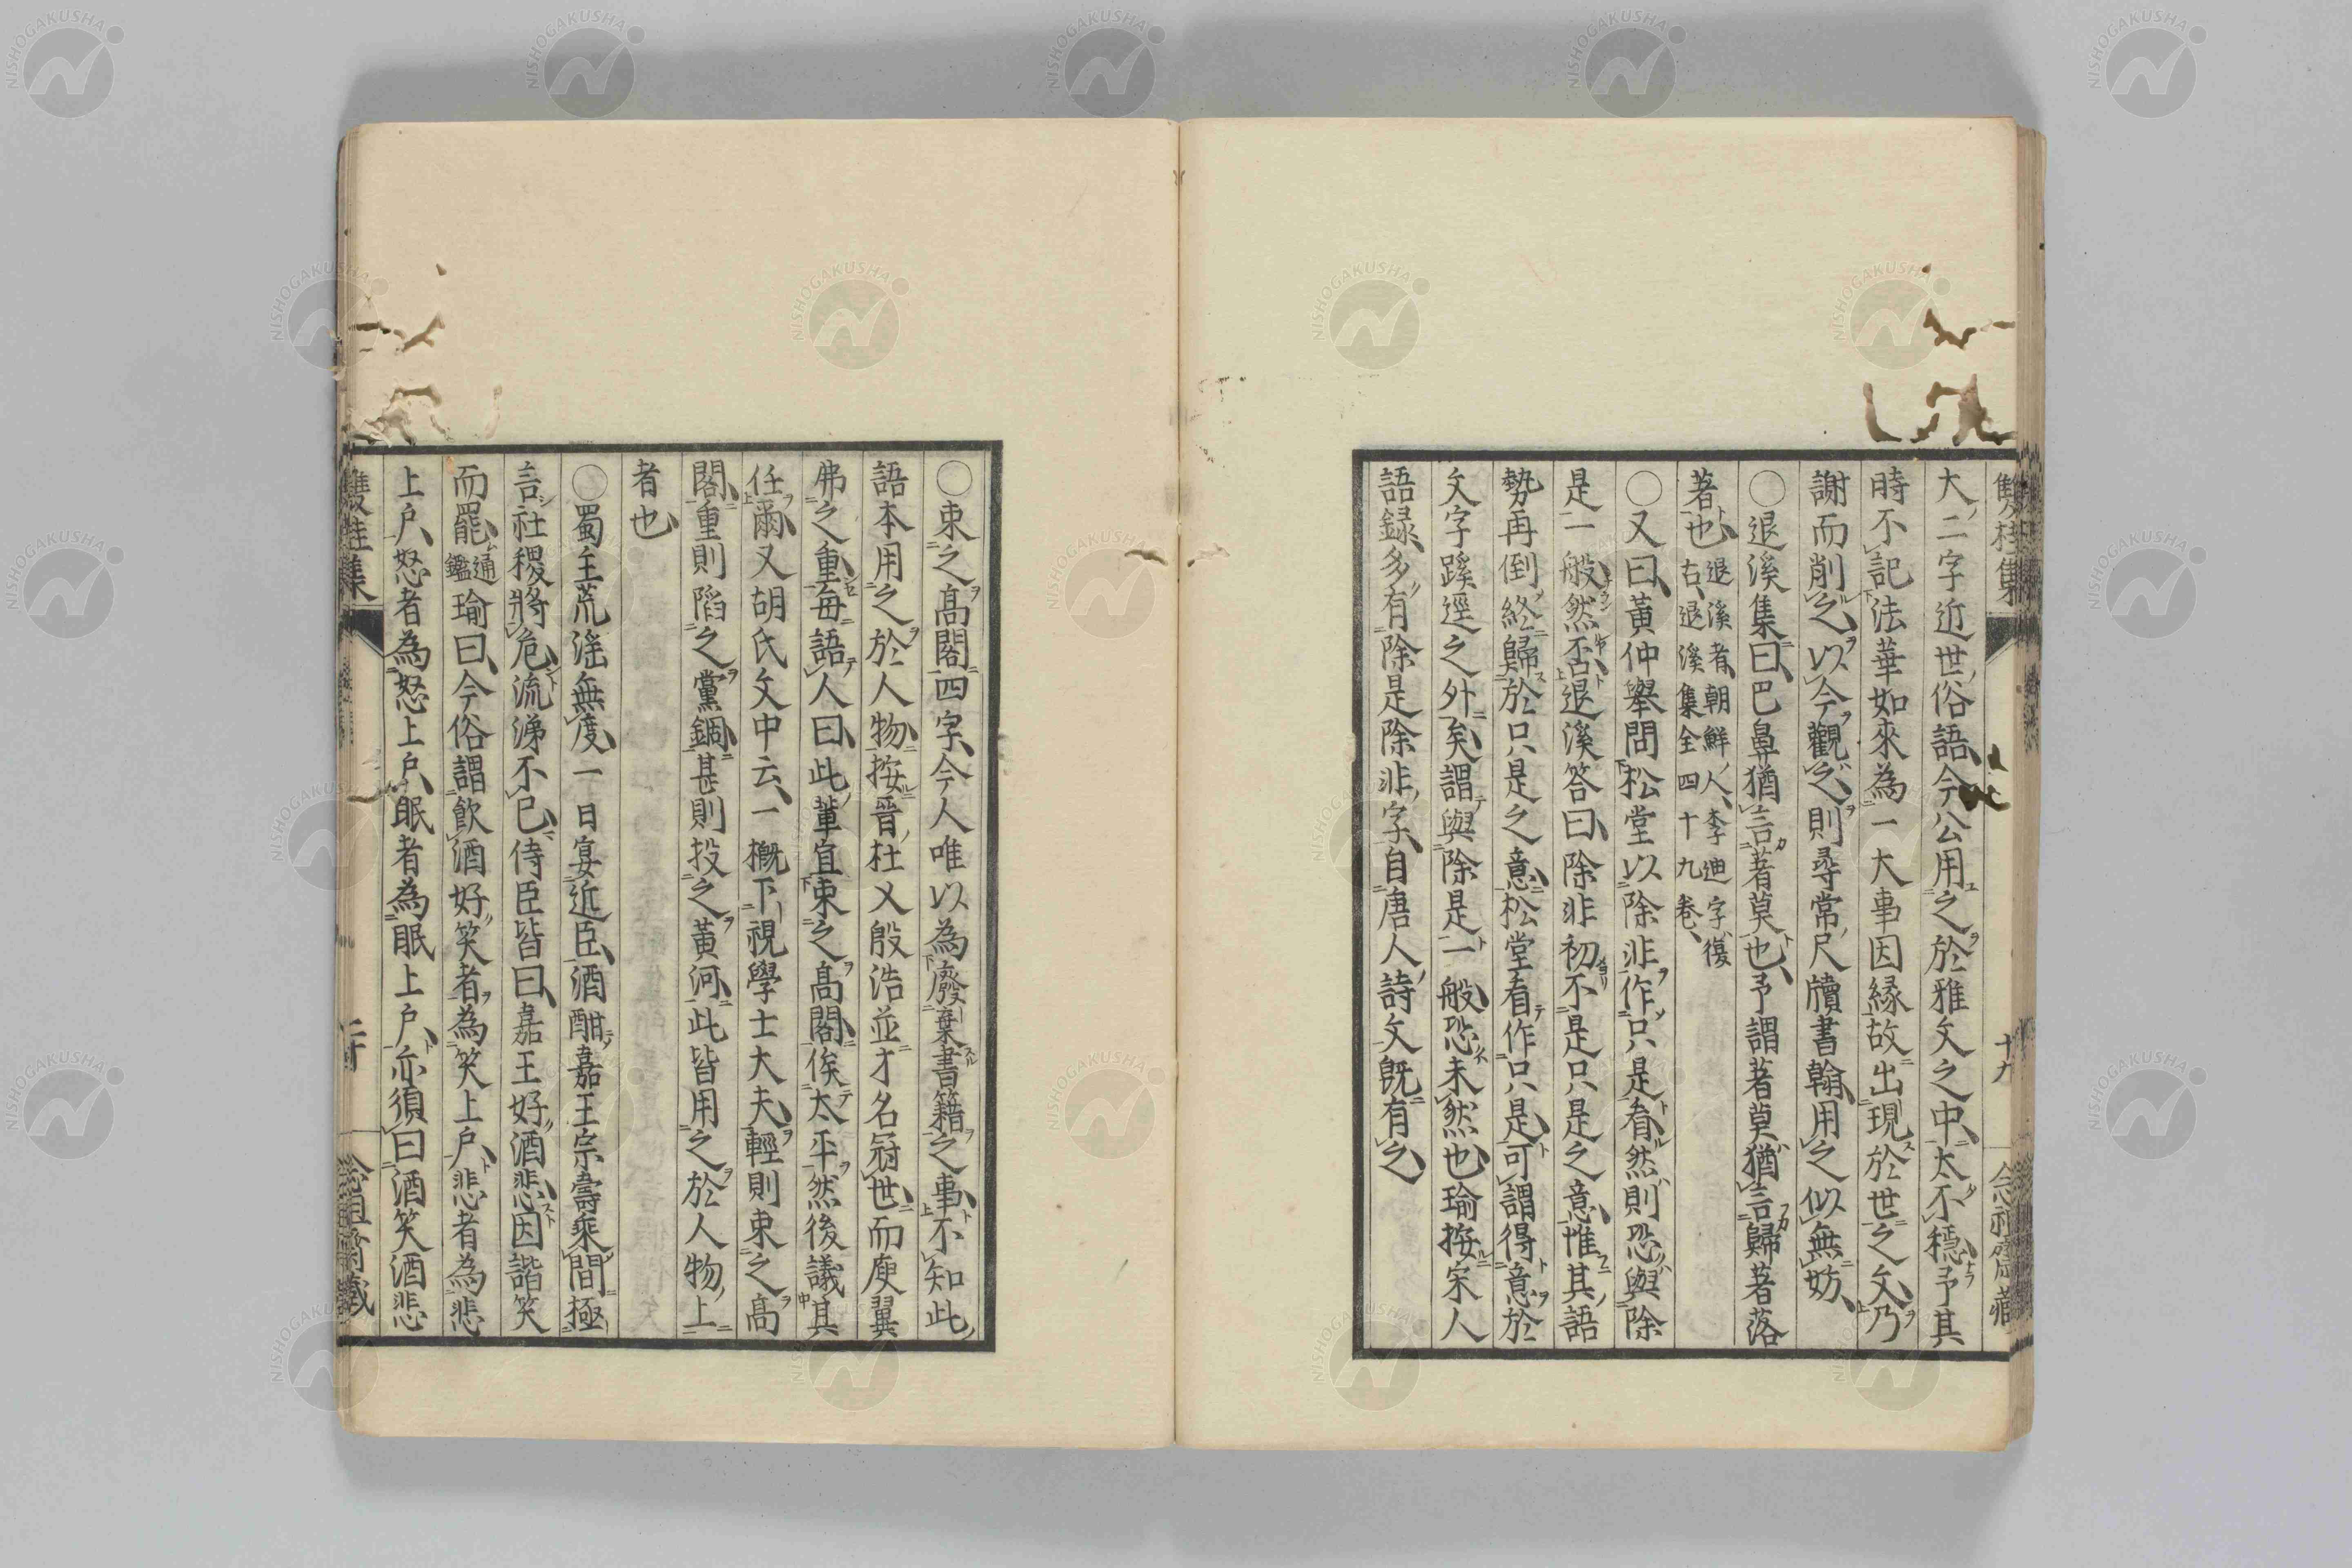 雙桂集 十九
大二字近世俗語今公用之於雅文之中太不穩予其
時不記法華如來為一大事因緣故出現於世之文乃
謝而削之以今觀之則尋常尺牘書翰用之似無妨
○退溪集曰巴鼻猶言著莫也予謂著莫猶言歸著落
著也退溪者朝鮮人李迪字復
古退溪集全四十九卷
○又曰黃仲舉問松堂以除非作只是看然則恐與除
是一般然否退溪答曰除非初不是只是之意惟其語
勢再倒終歸於只是之意松堂看作只是可謂得意於
文字蹊逕之外矣謂與除是一般恐未然也瑜按宋人
語録多有除是除非字自唐人詩文既有之
○束之高閣四字今人唯以為廢棄書籍之事不知此
語本用之於人物按晉杜乂殷浩並才名冠世而庾翼
弗之重每語人曰此輩宜束之高閣俟太平然後議其
任爾又胡氏文中云一概下視學士大夫輕則束之高
閣重則陷之黨錮甚則投之黃河此皆用之於人物上
者也
○蜀主荒滛無度一日宴近臣酒酣嘉王宗壽乘間極
言社稷將危流涕不已侍臣皆曰嘉王好酒悲因諧笑
而罷通鑑瑜曰今俗謂飲酒好笑者為笑上戶悲者為悲
上戶怒者為怒上戶眠者為眠上戶亦須曰酒笑酒悲
雙桂集
NISHOGAKUSHA